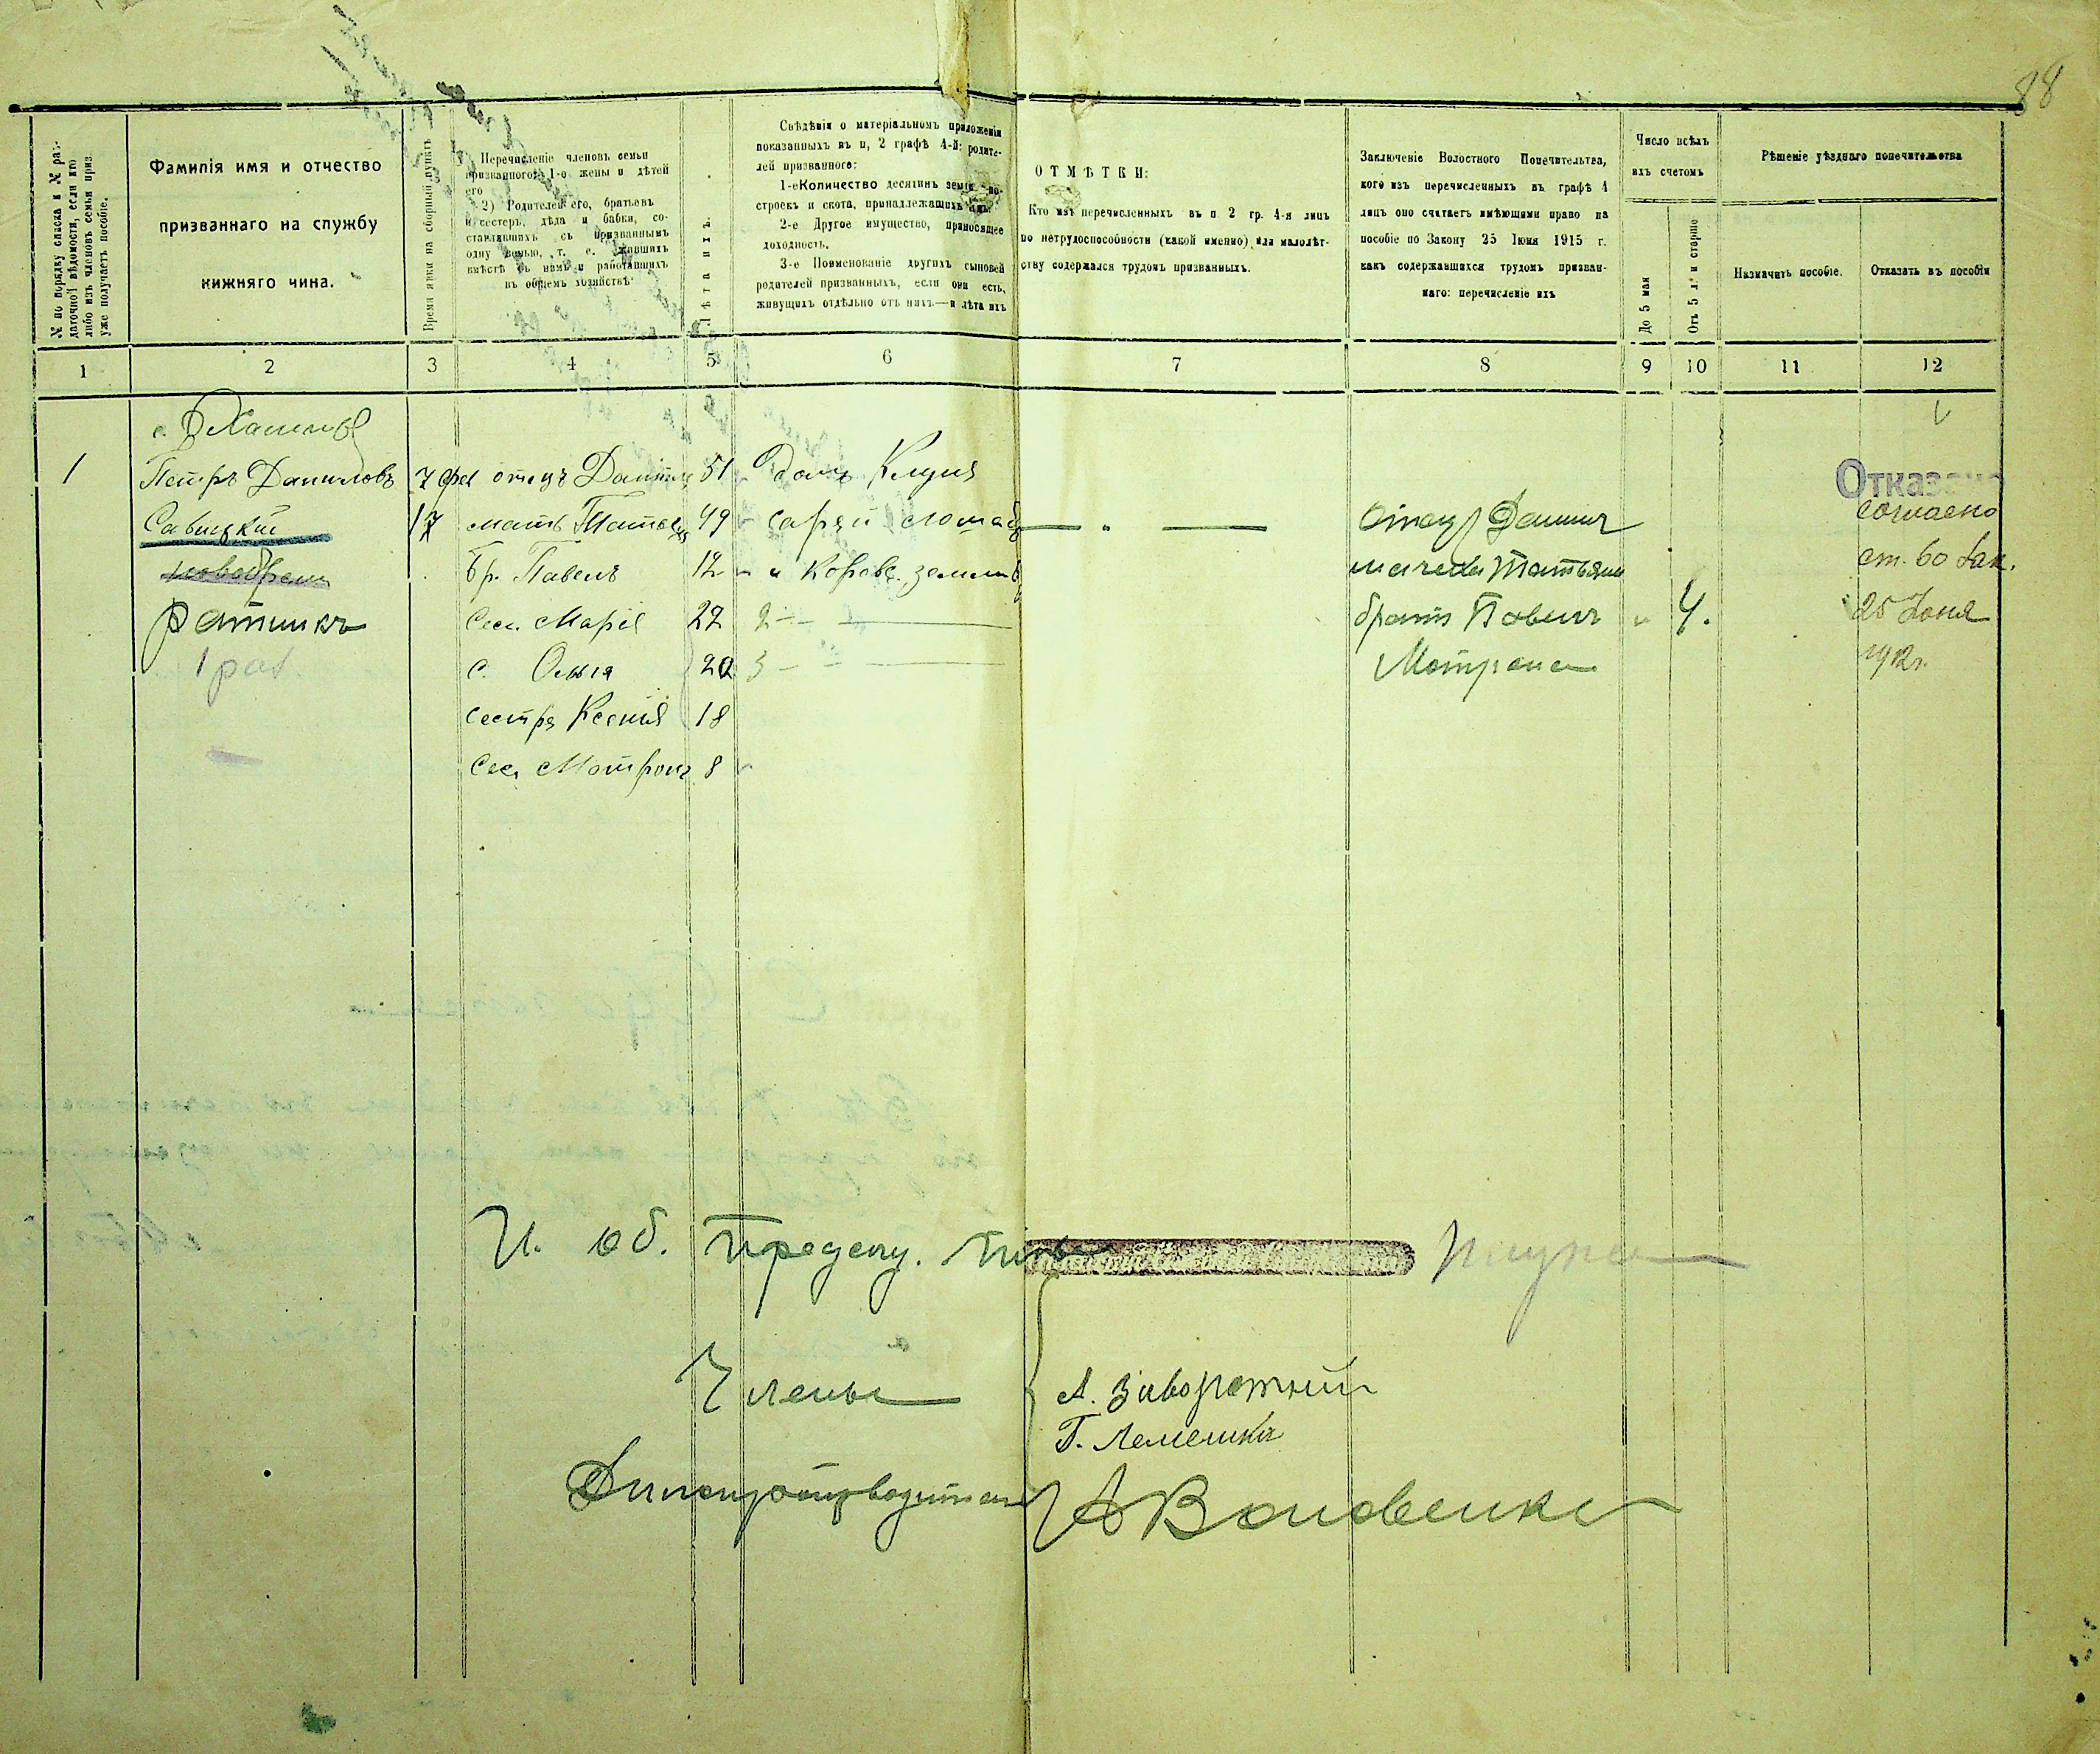 88
№ по порядку списка и № раз-
даточной вѣдомости, если кто
либо изъ членовъ семьи приз.
уже получаетъ пособіе.
Фамилія имя и отчество
призваннаго на службу
нижняго чина.
Время явки на сборный пунктъ
Перечисленіе членовъ семьи
призванного: 1-о жены и дѣтей
его
2) Родителей его, братьевъ
и сестеръ, дѣда и бабки, со-
ставлявшихъ съ призваннымъ
одну семью, т. е. жившихъ
вмѣстѣ съ нимъ и работавшихъ
въ общемъ хозяйствѣ
Лѣта ихъ.
Свѣдѣнія о матеріальномъ приложенія
показанныхъ въ п, 2 графѣ 4-й: родите-
лей призванного:
1-е Количество десятинъ земли, по-
строекъ и скота, принадлежащихъ имъ
2-е Другое имущество, приносящее
доходность.
3-е Поименованіе другихъ сыновей
родителей призванныхъ, если они есть,
живущихъ отдѣльно отъ нихъ—и лѣта ихъ
ОТМѢТКИ:
Кто изъ перечисленныхъ въ п 2 гр. 4-я лицъ
по нетрудоспособности (какой именно) или малолѣт-
ству содержался трудомъ призванныхъ.
Заключеніе Волостного Попечительства,
кого изъ перечисленныхъ въ графѣ 4
лицъ оно считаетъ имѣющими право на
пособіе по Закону 25 Іюня 1915 г.
какъ содержавшихся трудомъ призван-
наго: перечисленіе ихъ
Число всѣхъ
ихъ счетомъ
До 5 мая
Отъ 5 л. и старше
Рѣшеніе уѣзднаго попечительства
Назначить пособіе.
Отказать въ пособіи
1 2 3 4 5 6 7 8 9 10 11 12
1 Петръ Даниловъ 7 фев отецъ Даніилъ 51 домъ Клуня
Савицкій 17 мать Татьяна 49 сарай лошадь
Бр. Павелъ 12 и корова земли
Ратникъ Сес. Марія 22 2
1 раз. с. Ольга 20 3
сестра Ксенія 18
Сес. Матрона 8
Отецъ Даниил
мачеха Татьяна
братъ Павелъ 4.
Матрена
Отказано
согласно
ст. 60 Зак.
25 Іюня
1912 г.
И. об. Предсѣд.
Члены А. Заворотный
Г. Лемешко
Дѣлопроизводитель А Воловенко